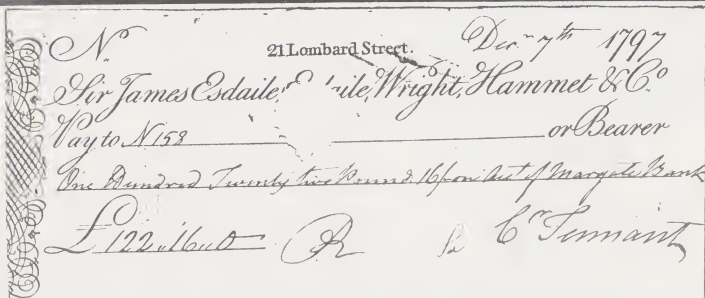 Nº 21 Lombard Street. Decr 7th 1797
Sir James Esdaile, Esdaile, Wright, Hammet & Co.
Pay to N 158 or Bearer
One Hundred Twenty two Pound 16/ on Acct of Margate Bank
£122,,16,,0 Cr Tennant